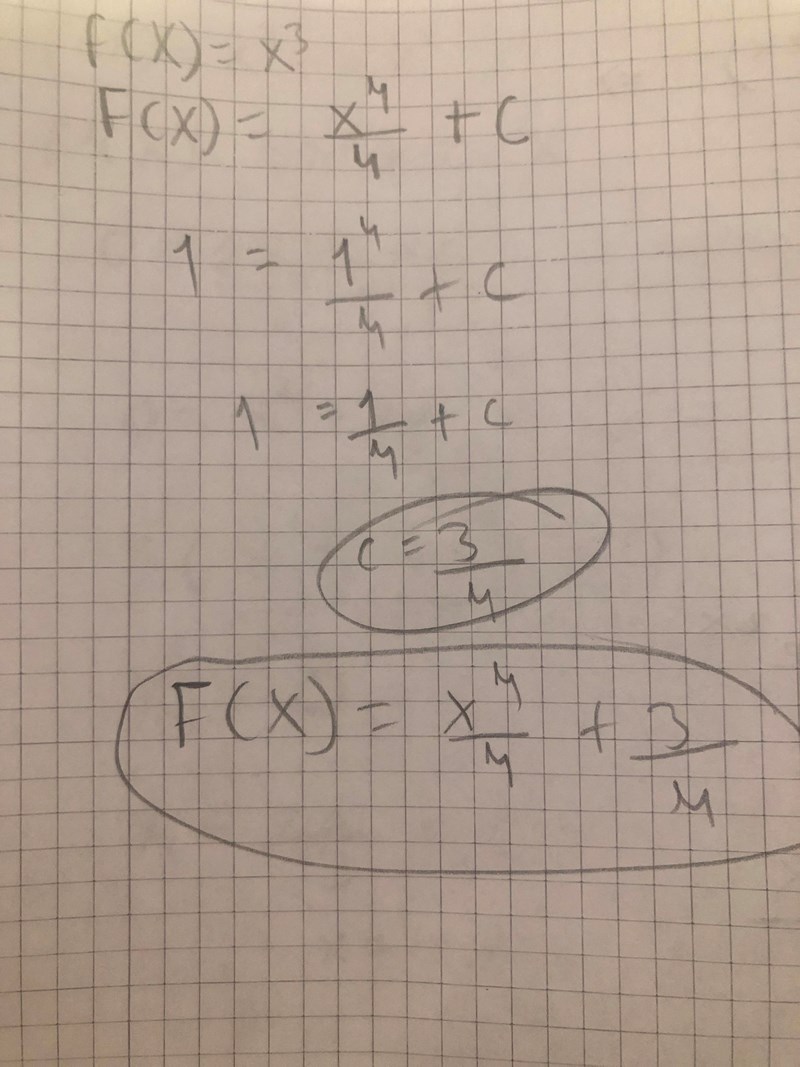 f(x) = x³
F(x) = x⁴/4 + C
1 = 1⁴/4 + C
1 = 1/4 + C
C = 3/4
F(x) = x⁴/4 + 3/4